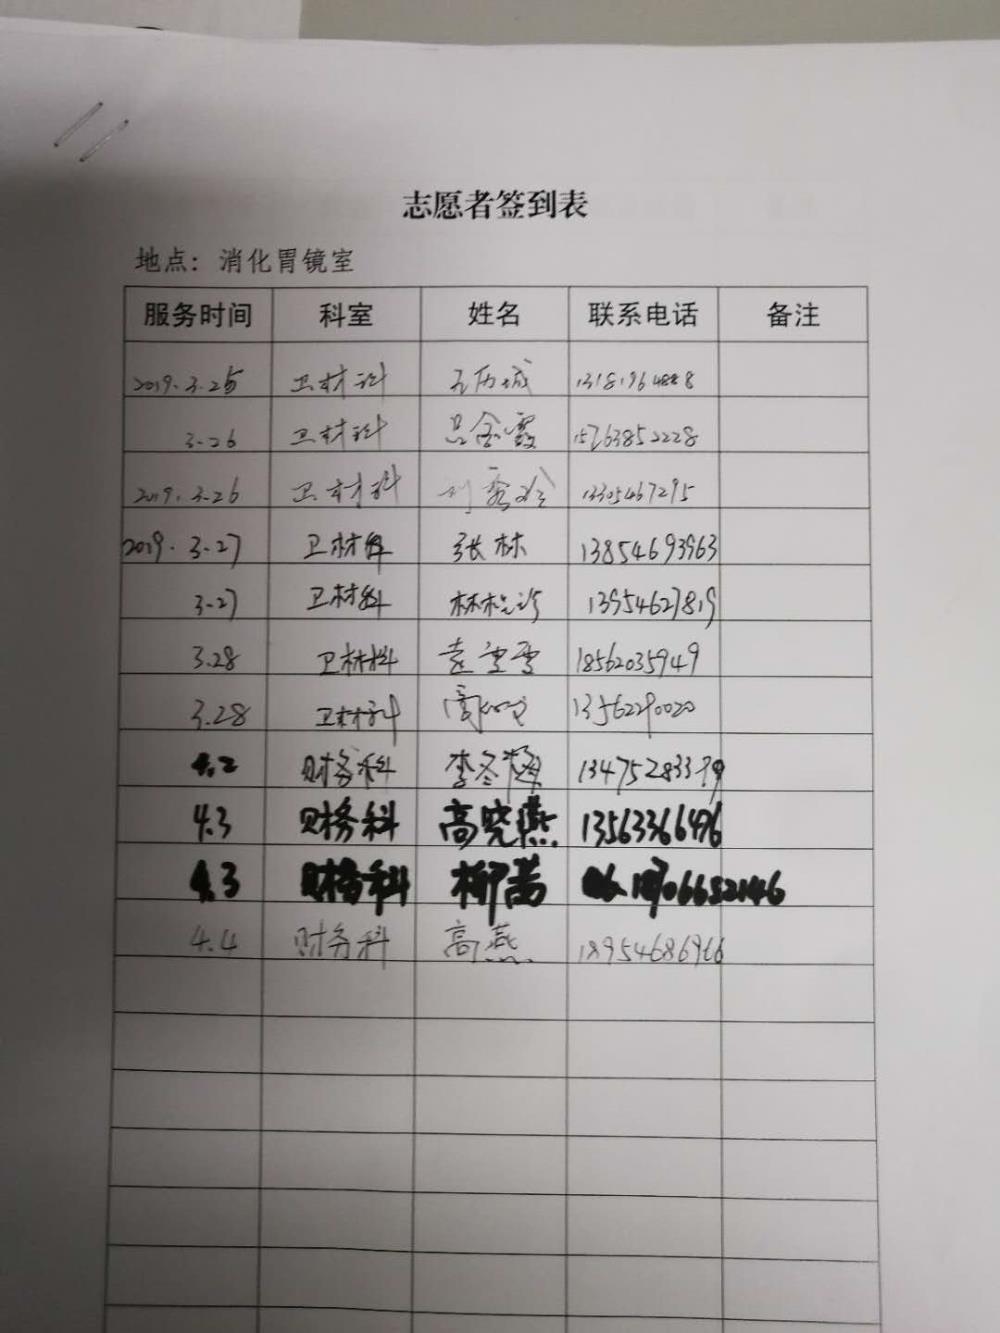 志愿者签到表
地点：消化胃镜室
服务时间 科室 姓名 联系电话 备注
2019.3.25 卫材科
3-26 卫材科 吕金霞 15763852228
2019.3.26 卫材科 13305467295
2019.3-27 卫材科 张林 13854693963
3-27 卫材科 13954627819
3.28 卫材科 18562035949
3.28 卫材科 13562290020
4.2 财务科 李冬梅
4.3 财务科 高晓燕 13563366476
4.3 财务科 06652146
4.4 财务科 高燕